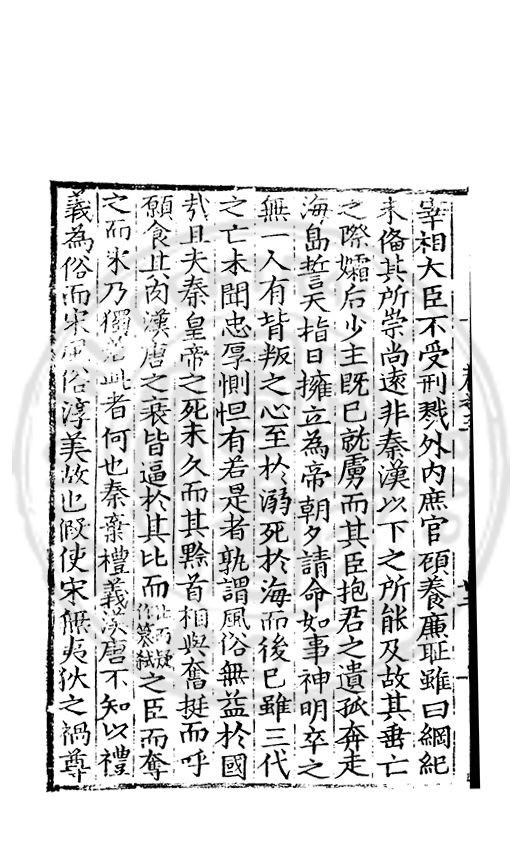 宰相大臣不受刑戮外内庶官碩養廉耻雖曰綱紀
未備其所崇尚遠非秦漢以下之所能及故其垂亡
之際孀后少主既已就虜而其臣抱君之遺孤奔走
海島誓天指日擁立為帝朝夕請命如事神明卒之
無一人有背叛之心至於溺死於海而後已雖三代
之亡未聞忠厚惻怛有若是者孰謂風俗無益於國
㢤且夫秦皇帝之死未久而其黔首相與奮挺而呼
願食其肉漢唐之衰皆逼於其比而比而疑作篡弑之臣而奪
之而宋乃獨若此者何也秦棄禮義漢唐不知以禮
義為俗而宋風俗淳美故也假使宋無夷狄之禍尊